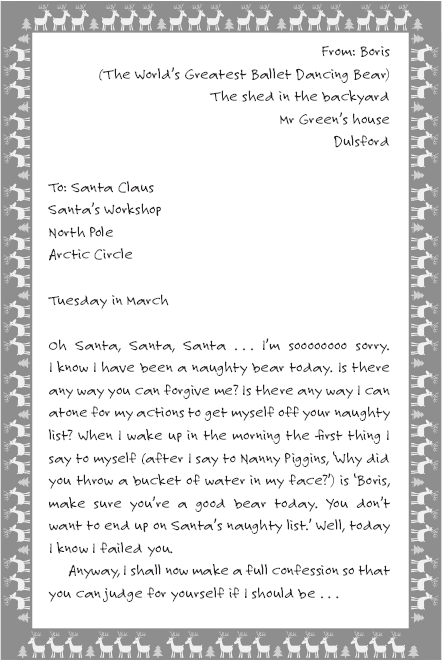 From: Boris
(The World's Greatest Ballet Dancing Bear)
The shed in the backyard
Mr Green's house
Dulsford
To: Santa Claus
Santa's Workshop
North Pole
Arctic Circle
Tuesday in March
Oh Santa, Santa, Santa . . . I'm soooooooo sorry.
I know I have been a naughty bear today. Is there
any way you can forgive me? Is there any way I can
atone for my actions to get myself off your naughty
list? When I wake up in the morning the first thing I
say to myself (after I say to Nanny Piggins, 'Why did
you throw a bucket of water in my face?') is 'Boris,
make sure you're a good bear today. You don't
want to end up on Santa's naughty list.' Well, today
I know I failed you.
Anyway, I shall now make a full confession so that
you can judge for yourself if I should be . . .